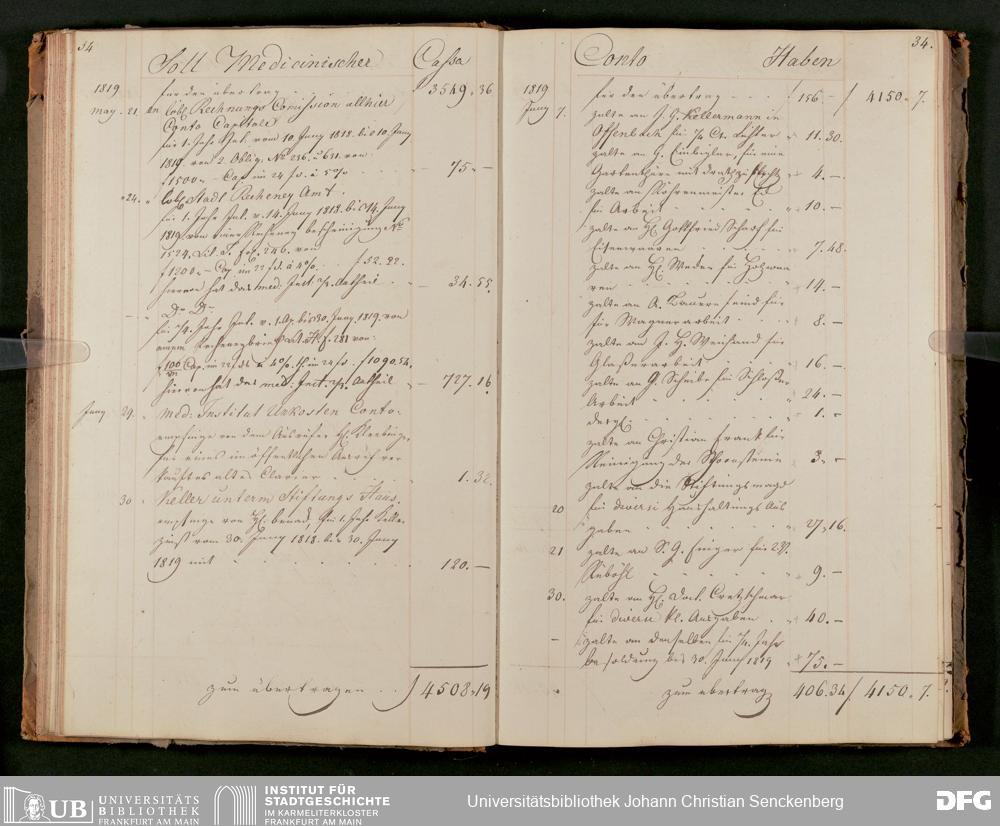 34
Soll Medicinischer Cassa
1819 für den übertrag 3549. 36
May. 21. an löbl. Rechnungs Comission allhier
Conto Capitale
für 1. Jahr Int. vom 10. Juny 1818. bis 10. Juny
1819. von 2. Oblig. No 236. u 631. von
f 1500.- Cap. im 24 f. à 5% 75. -
24. " löbl. Stadt Recheney Amt.
für 1. Jahr Int. v. 14. Juny 1818. bis 14. Juny
1819 von einer Recheney bescheinigung No
1524. Lit. S. fog. 246. von
f 1200.- Cap. im 22 f. à 4% f. 52. 22.
hiervon hat das med. Inst. Antheil 34. 55.
- " Do Do
für Jahr Int. v. 1. Ap. bis 30. Juny 1819. von
einem Recheneybrief Lit. H. f. 281 von
Cap. im 22 f. à 4% im 24 f. f 1090. 54.
hiervon hat das med. Inst. Antheil 727. 16.
Juny 29. " Med: Institut Unkosten Conto.
empfinge von dem Ausrufer H.
für eines im öffentlichen Ausruf ver
kauftes altes Clavier 1. 32.
30. " Keller unterm Stiftungs Haus
empfinge von H. für 1. Jahr Keller
zinß vom 30. Juny 1818. bis 30. Juny
1819 mit 120. -
zum übertragen f 4508. 19
34.
Conto Haben
1819 für den übertrag f 156 - f 4150. 7.
Juny 7. zalte an J. G. Kellermann in
Offenbach für Ct. Lichter 11. 30.
zalte an G. für eine
Gartenthüre mit 4. -
zalte an Röhrenmeister
für Arbeit 10. -
zalte an H. Gottfried Scharf für
Eisenwaaren 7. 48.
zalte an H. Weder für Holzwaa
ren 14. -
zalte an A. Bauernfeind für
für Wagnerarbeit 8. -
zalte an J. H. Weisand für
Glaßerarbeit 16. -
zalte an G. Scheibe für Schloßer
Arbeit 24. -
dergl. 1. -
zalte an Christian Frank für
Reinigung der Schornsteine 3. -
zalte an die Stiftungsmagd
20 für diverse Haushaltungs Aus
gaben 27. 16.
21 zalte an S. G. Finger für
Rüböhl 9. -
30. zalte an H. Doct. Cretzschmar
für diverse kl. Ausgaben 40. -
- zalte an denselben für 1/4 Jahr
besoldung bis 30. Juny 1819 75. -
zum übertrag 406. 34 f. 4150. 7.
UB UNIVERSITÄTS
BIBLIOTHEK
FRANKFURT AM MAIN
INSTITUT FÜR
STADTGESCHICHTE
IM KARMELITERKLOSTER
FRANKFURT AM MAIN
Universitätsbibliothek Johann Christian Senckenberg
DFG